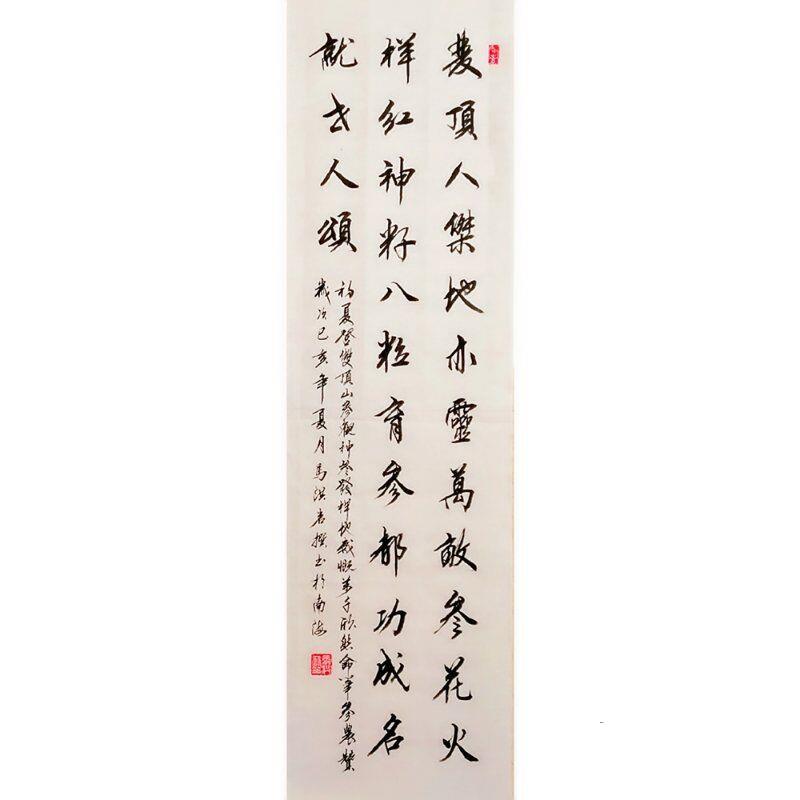 雙頂人傑地亦靈萬畝參花火
样红神籽八粒育参都功成名
就世人頌
初夏登雙頂山参觀神参發样地感慨萬千欣然命筆参農贊
歲次己亥年夏月馬洪岩撰書於南海